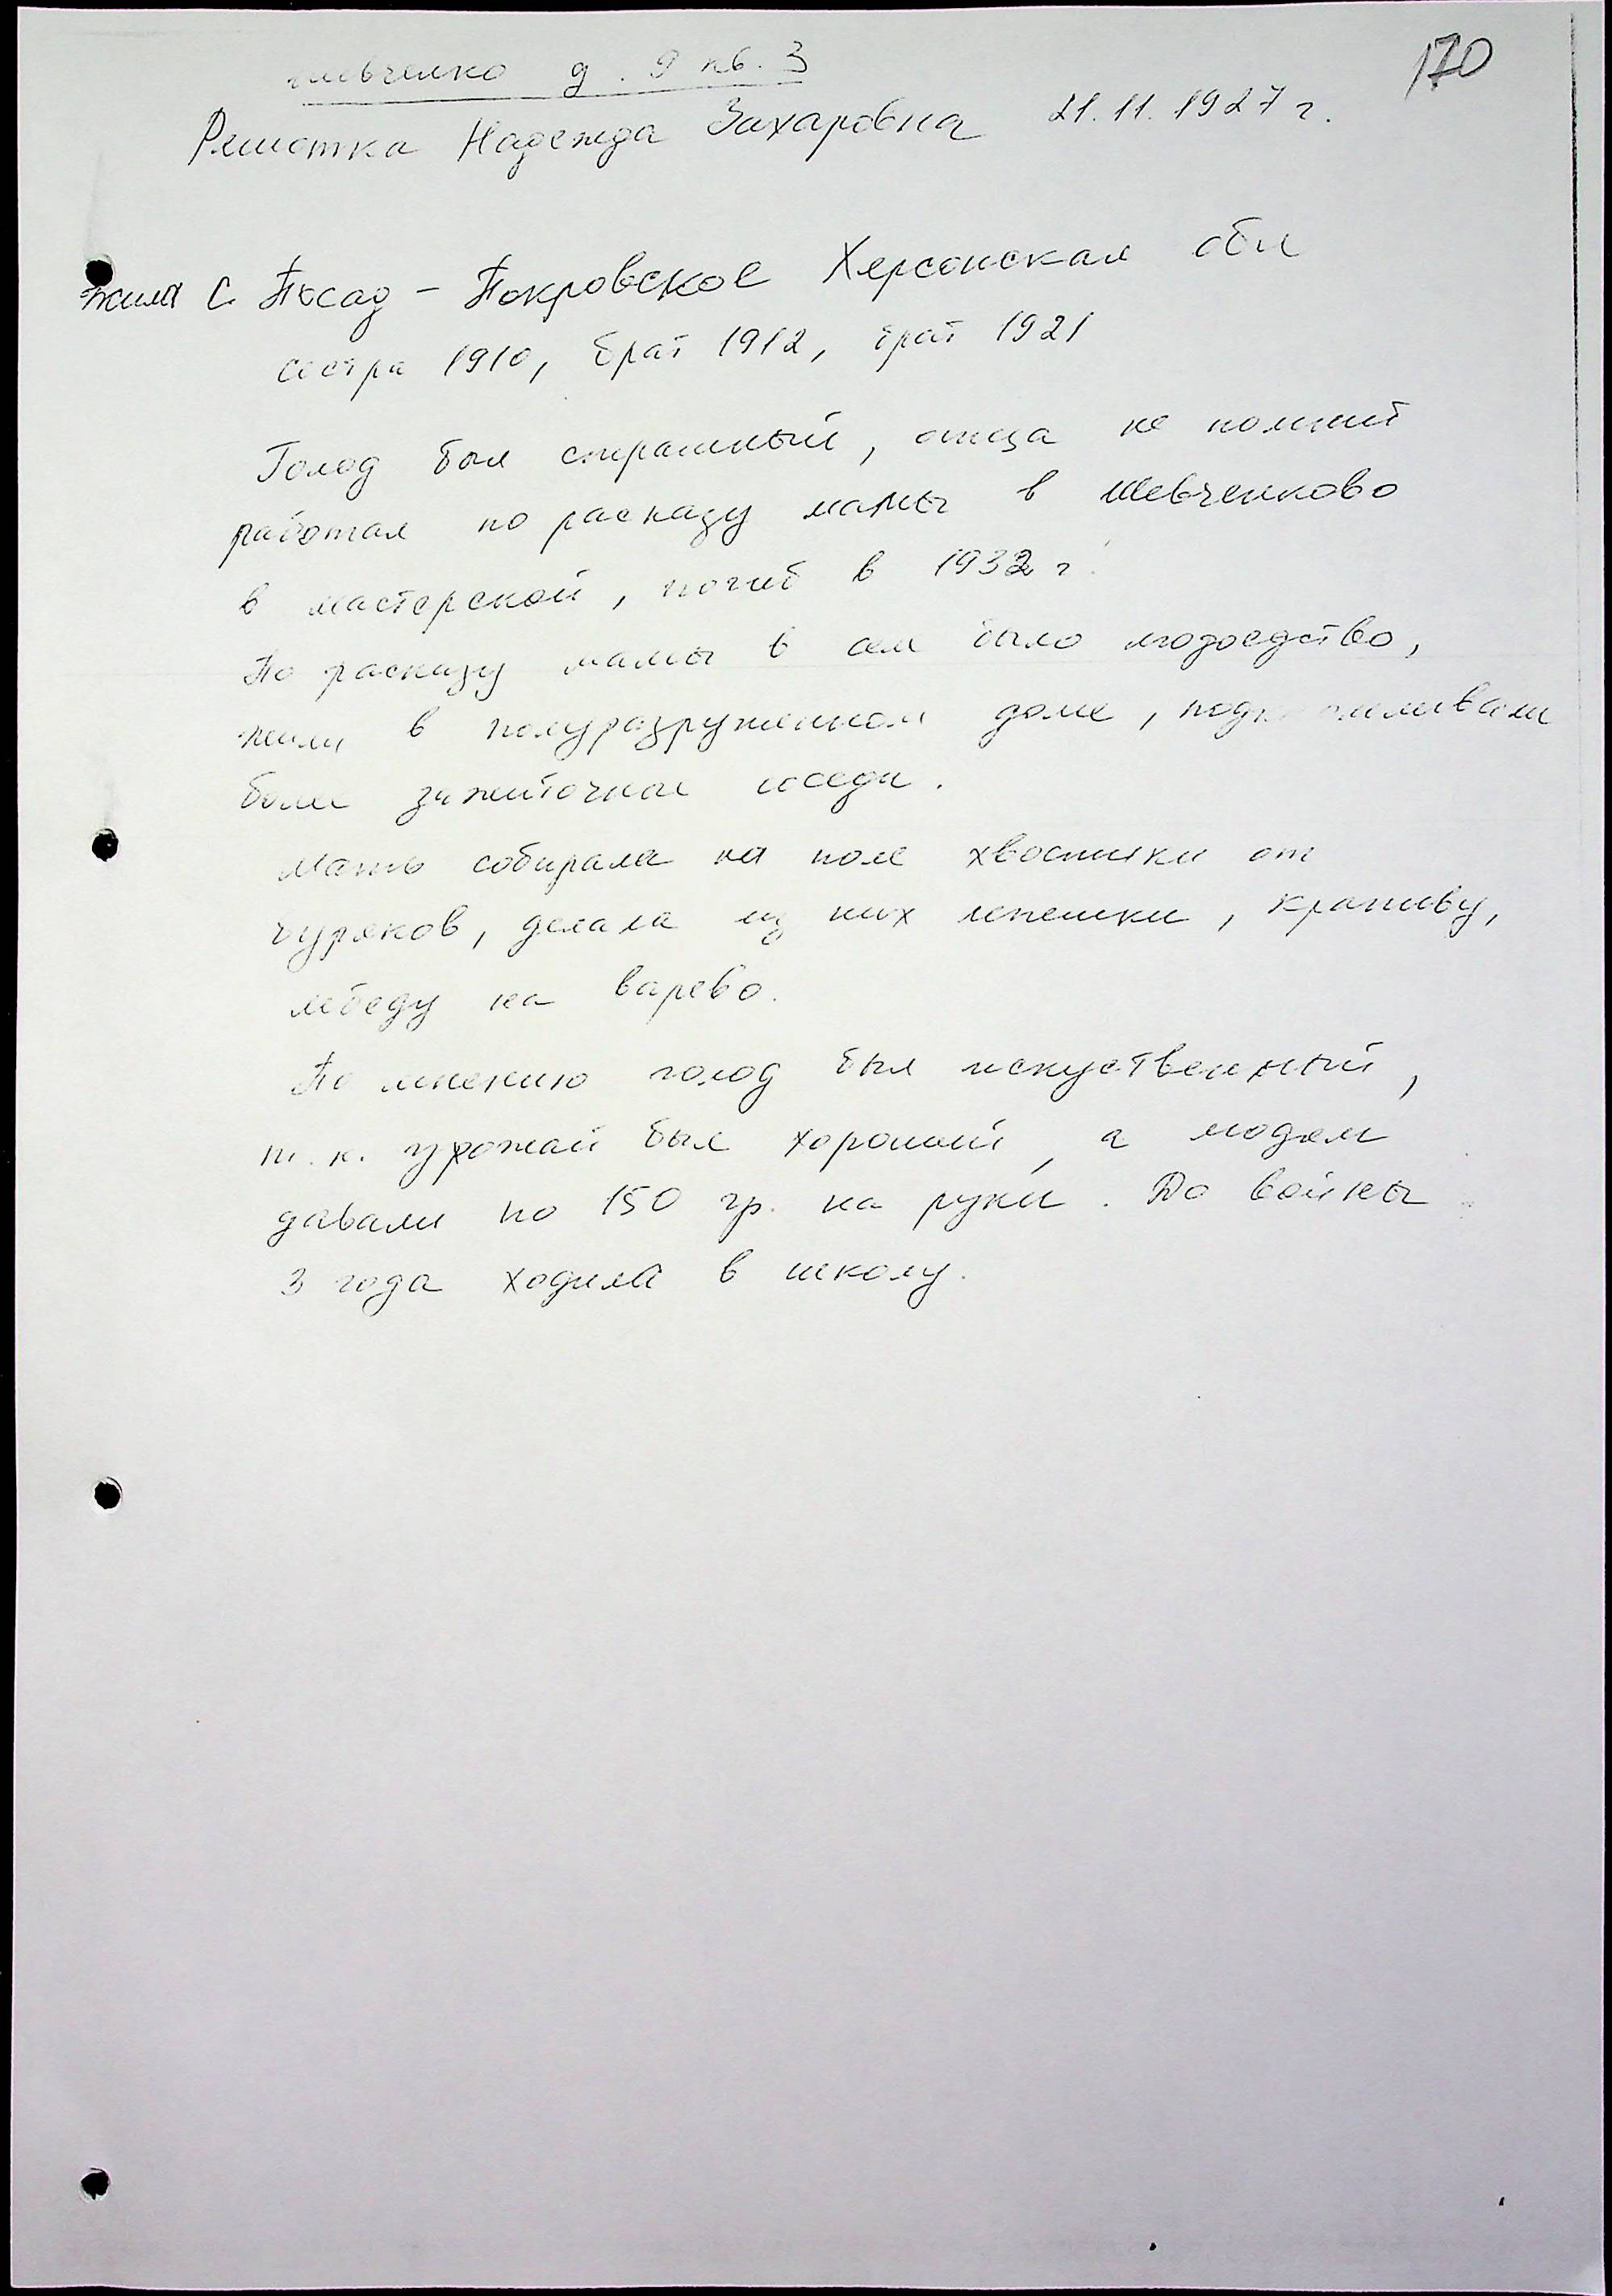 170
д. 9 кв. 3
Решотка Надежда Захаровна 21.11.1927 г.
жила с. Посад - Покровское Херсонская обл
сестра 1910, брат 1912, брат 1921
Голод был страшный, отца не помнит
работал по расказу мамы в Шевченково
в мастерской, погиб в 1932 г.
По расказу мамы в сел было людоедство,
жили в полуразрушенном доме,
более зажиточные соседи.
Мать собирала на поле хвостики от
буряков, делала из них лепешки, крапиву,
лебеду на варево.
По мнению голод был искуственный,
т.к. урожай был хороший, а людям
давали по 150 гр. на руки. До войны
3 года ходила в школу.